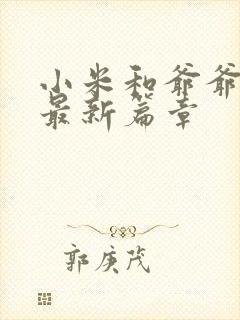 小米和爷爷
最新篇章
郭庚茂